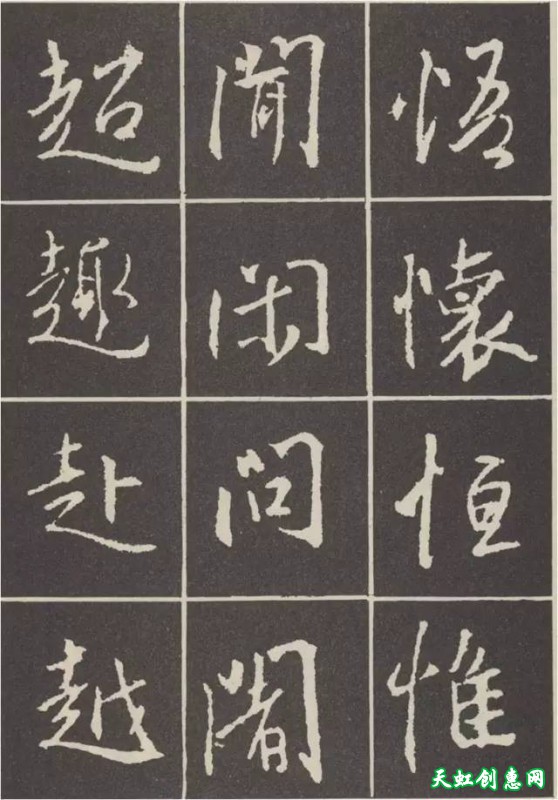 悟懷恒惟
聞閑問闍
超趣赴越
天虹创惠网